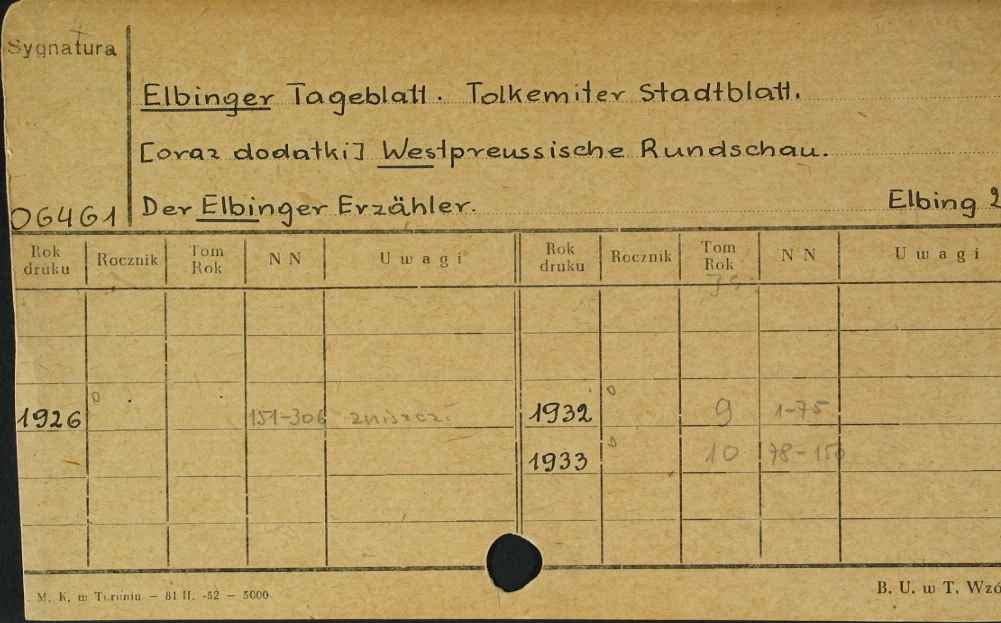 Sygnatura
Elbinger Tageblatt. Tolkemiter Stadtblatt.
[oraz dodatki] Westpreussische Rundschau.
06461 Der Elbinger Erzähler. Elbing 2
Rok druku Rocznik Tom Rok NN Uwagi Rok druku Rocznik Tom Rok NN Uwagi
1926 151-306 zniszcz. 1932 9 1-75
1933 10 78-150
M. K. w Toruniu – 81 II. -52 – 5000 B. U. w T. Wzó